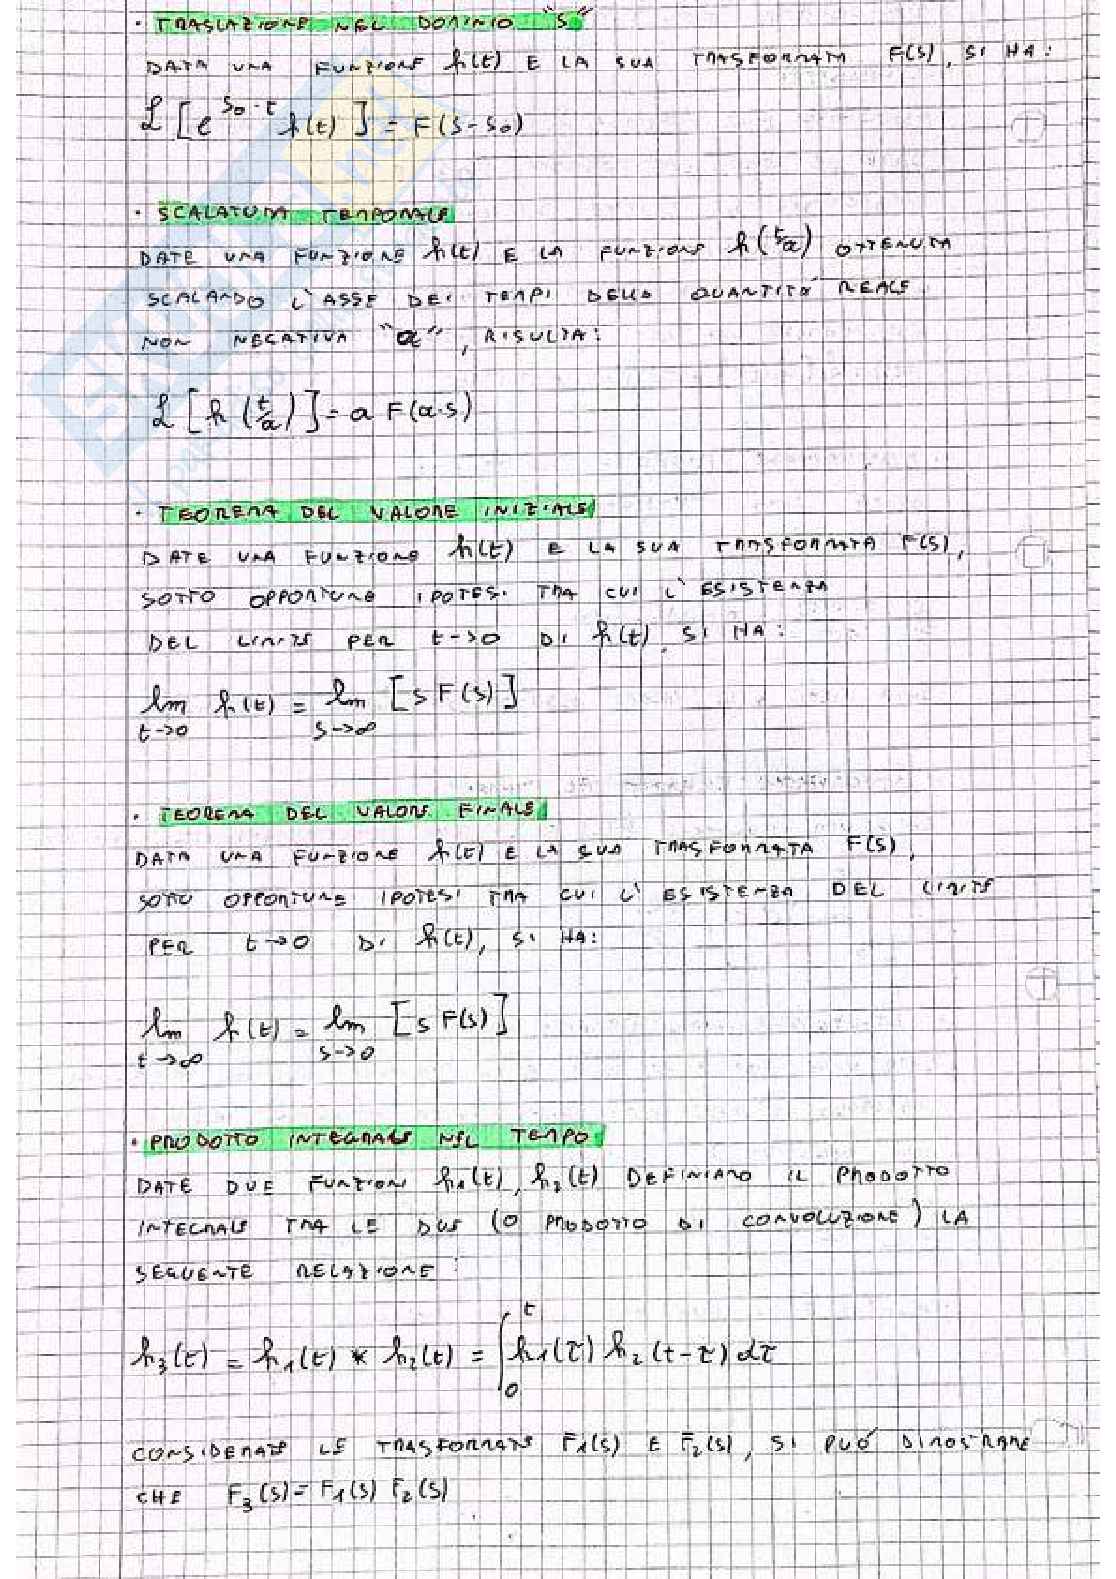 · TRASLAZIONE NEL DOMINIO "S"
DATA UNA FUNZIONE h(t) E LA SUA TRASFORMATA F(S), SI HA:
ℒ[e^{S₀·t} h(t)] = F(S-S₀)
· SCALATURA TEMPORALE
DATE UNA FUNZIONE h(t) E LA FUNZIONE h(t/a) OTTENUTA
SCALANDO L'ASSE DEI TEMPI DELLA QUANTITÀ REALE
NON NEGATIVA "a", RISULTA:
ℒ[h(t/a)] = a F(a·s)
· TEOREMA DEL VALORE INIZIALE
DATE UNA FUNZIONE h(t) E LA SUA TRASFORMATA F(S),
SOTTO OPPORTUNE IPOTESI TRA CUI L'ESISTENZA
DEL LIMITE PER t->0 DI h(t), SI HA:
lim h(t) = lim [s F(s)]
t->0 s->∞
· TEOREMA DEL VALORE FINALE
DATA UNA FUNZIONE h(t) E LA SUA TRASFORMATA F(S),
SOTTO OPPORTUNE IPOTESI TRA CUI L'ESISTENZA DEL LIMITE
PER t->0 DI h(t), SI HA:
lim h(t) = lim [s F(s)]
t->∞ s->0
· PRODOTTO INTEGRALE NEL TEMPO
DATE DUE FUNZIONI h₁(t), h₂(t) DEFINIAMO IL PRODOTTO
INTEGRALE TRA LE DUE (O PRODOTTO DI CONVOLUZIONE) LA
SEGUENTE RELAZIONE:
h₃(t) = h₁(t) * h₂(t) = ∫₀ᵗ h₁(τ) h₂(t-τ) dτ
CONSIDERATE LE TRASFORMATE F₁(s) E F₂(s), SI PUÓ DIMOSTRARE
CHE F₃(s) = F₁(s) F₂(s)